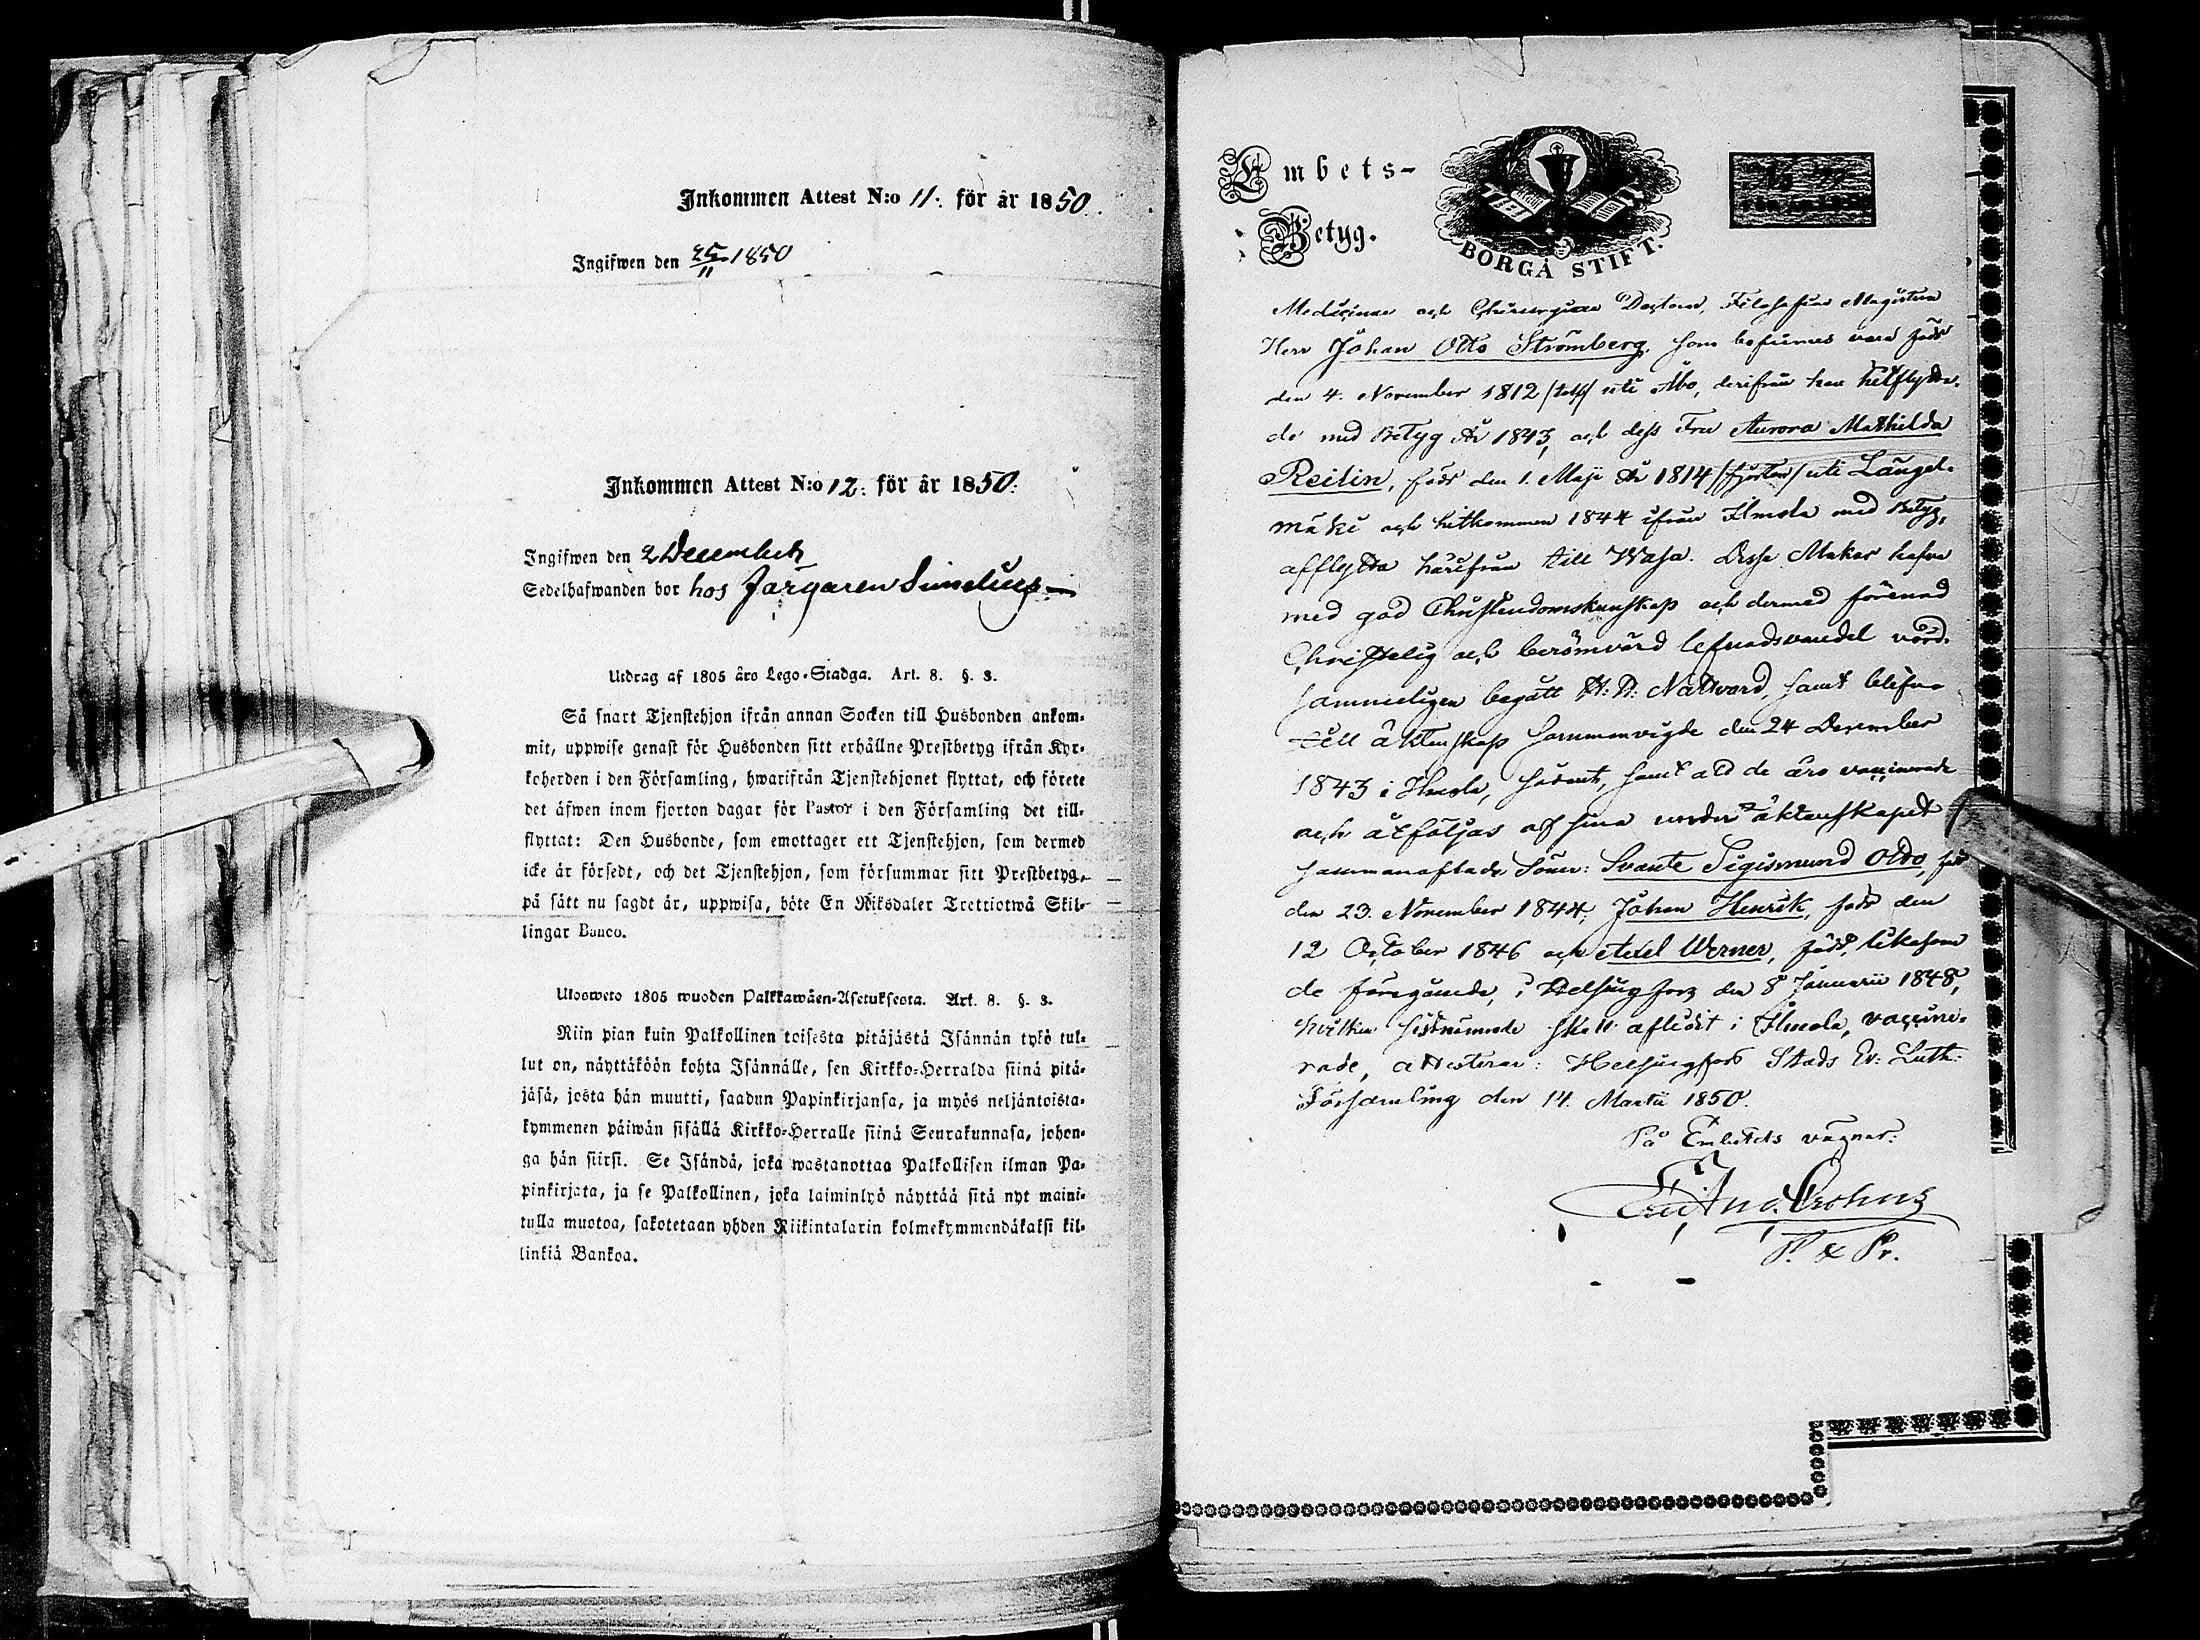 Inkommen Attest N:o 11. för år 1850.
Ingifwen den 25/11 1850
Inkommen Attest N:o 12. för år 1850.
Ingifwen den 2 December
Sedelhafwanden bor hos Färgaren Simelius
Utdrag af 1805 års Lego-Stadga. Art. 8. §. 3.
Så snart Tjenstehjon ifrån annan Socken till Husbonden ankom-
mit, uppwise genast för Husbonden sitt erhållne Prestbetyg ifrån Kyr-
koherden i den Församling, hwarifrån Tjenstehjonet flyttat, och förete
det äfwen inom fjorton dagar för Pastor i den Församling det till-
flyttat: Den Husbonde, som emottager ett Tjenstehjon, som dermed
icke är försedt, och det Tjenstehjon, som försummar sitt Prestbetyg,
på sätt nu sagdt är, uppwisa, böte En Riksdaler Trettiotwå Skil-
lingar Banco.
Ulosweto 1805 wuoden Palkkawäen-Asetuksesta. Art. 8. §. 3.
Niin pian kuin Palkollinen toisesta pitäjästä Isännän tykö tul-
lut on, näyttäköön kohta Isännälle, sen Kirkko-Herralda siinä pitä-
jäsä, josta hän muutti, saadun Papinkirjansa, ja myös neljäntoista-
kymmenen päiwän sisällä Kirkko-Herralle siinä Seurakunnasa, johon-
ga hän siirsi. Se Isändä, joka wastanottaa Palkollisen ilman Pa-
pinkirjata, ja se Palkollinen, joka laiminlyö näyttää sitä nyt maini-
tulla muotoa, sakotetaan yhden Riikintalarin kolmekymmendäkaksi kil-
linkiä Bankoa.
Embets-
Betyg.
BORGÅ STIFT.
Medicinae och Chirurgiae Doctorn, Filosofiae Magistern
Herr Johan Otto Strömberg, som befinnes vara född
den 4. November 1812 /tolf/ uti Åbo, derifrån han hitflytta-
de med Betyg År 1843, och dess Fru Aurora Mathilda
Reilin, född den 1. Maji År 1814 /fjorton/ uti Längel-
mäki och hitkommen 1844 ifrån Ilmola med Betyg,
afflytta härifrån till Wasa. Desse Makar hafva
med god Christendomskunskap och dermed förenad
Christelig och berömvärd lefnadsvandel vörd-
sammeligen begått H. H. Nattvard, samt blifvit
till äktenskap sammanvigde den 24 December
1843 i Ilmola, samt att de äro vaccinerade
och åtföljas af sina under äktenskapet
sammanaflade Söner: Svante Sigismund Otto, född
den 23. November 1844, Johan Henrik, född den
12 October 1846 och Axel Werner, född, likasom
de föregående, i Helsingfors den 8 Januarii 1848,
hvilken sistnämnde skall aflidit i Ilmola, vaccine-
rade, attesterar: Helsingfors Stads Ev: Luth:
Församling den 14. Martii 1850.
På Embetets vägnar:
Crohns
P. & Pr.